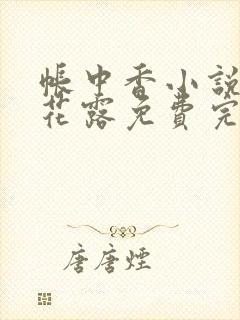 帐中香小說
花露免費完
唐唐煙